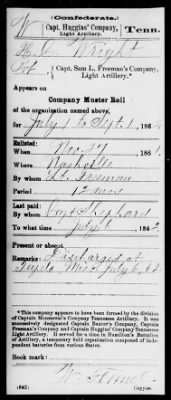 (Confederate.)
W Capt. Huggins' Company, Light Artillery. Tenn.
Wright
Pvt, Capt. Sam L. Freeman's Company, Light Artillery.*
Appears on
Company Muster Roll
of the organization named above,
for July 1 to Sept. 1, 186
Enlisted:
When Nov. 27, 1861
Where Nashville
By whom Lt. Freeman
Period 12 mos
Last paid:
By whom Capt Shephard
To what time July 1, 1862
Present or absent
Remarks: Discharged at
Tupelo Miss July 6, 62
*This company appears to have been formed by the division
of Captain Monsarrat's Company Tennessee Artillery. It was
successively designated Captain Baxter's Company, Captain
Freeman's Company and Captain Huggins' Company Tennessee
Light Artillery. It served for a time in Hamilton's Battalion
of Artillery, a temporary field organization composed of inde-
pendent batteries from various States.
Book mark:
(642) Copyist.